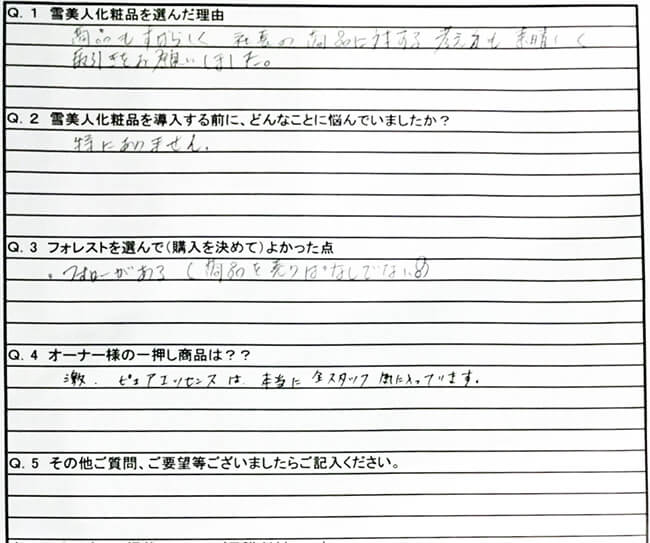 Q.1 雪美人化粧品を選んだ理由
商品もすばらしく 社長の商品に対する考え方も素晴しく
取引きをお願いしました。
Q.2 雪美人化粧品を導入する前に、どんなことに悩んでいましたか?
特にありません。
Q.3 フォレストを選んで(購入を決めて)よかった点
・フォローがある (商品を売りぱなしでない所)
Q.4 オーナー様の一押し商品は??
激、ピュアエッセンスは、本当に全スタッフ気に入ってます。
Q.5 その他ご質問、ご要望等ございましたらご記入ください。